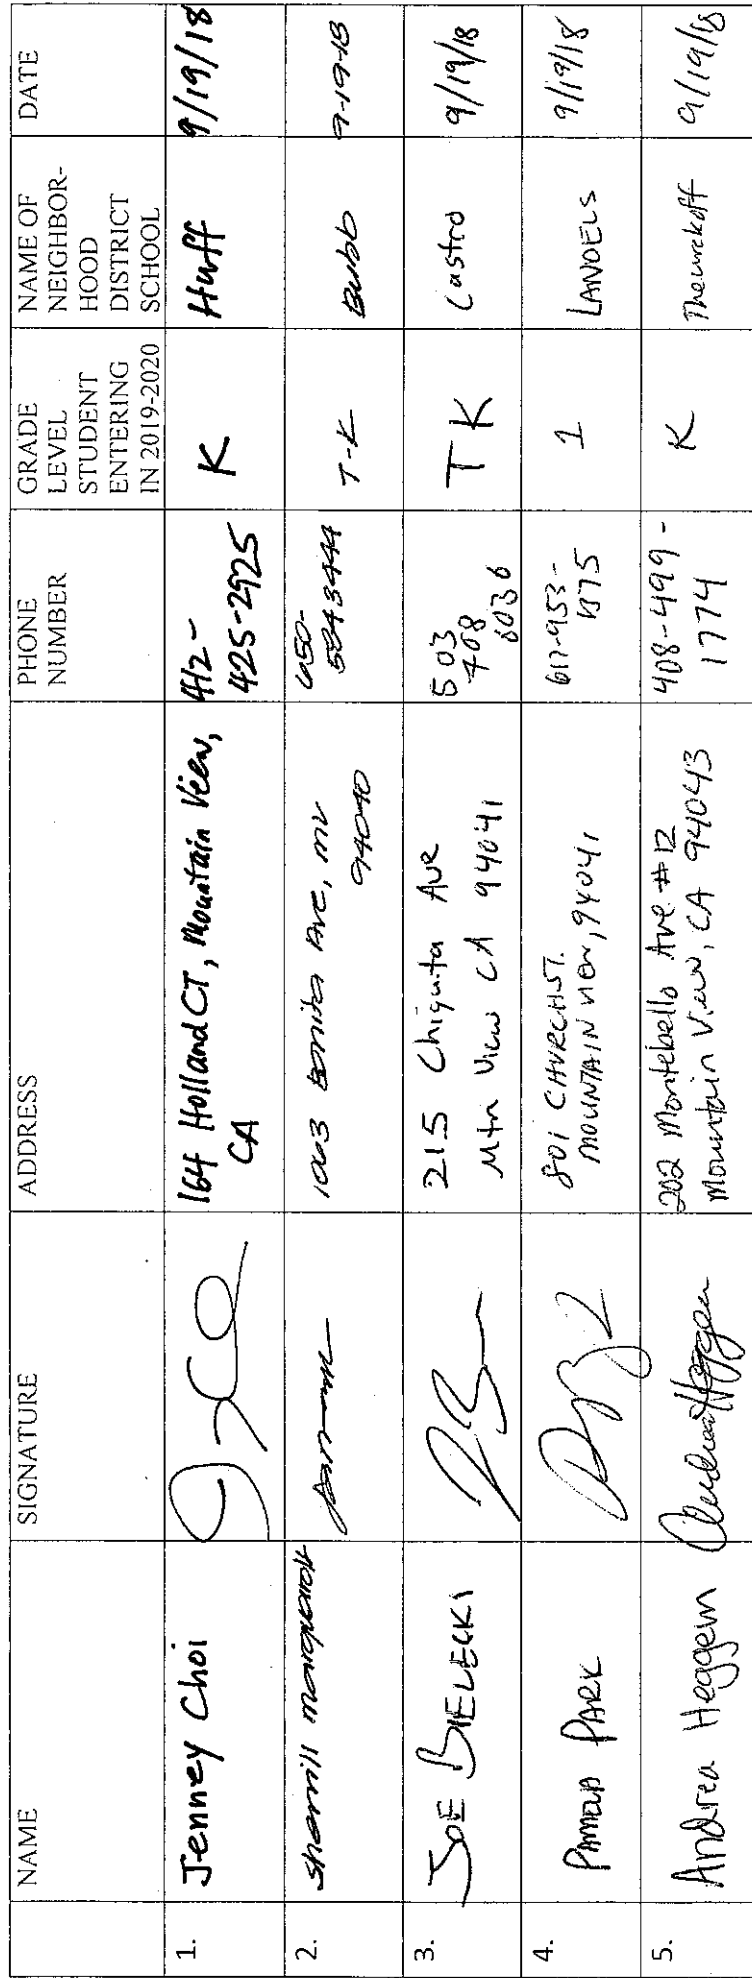 NAME
SIGNATURE
ADDRESS
PHONE
NUMBER
GRADE
LEVEL
STUDENT
ENTERING
IN 2019-2020
NAME OF
NEIGHBOR-
HOOD
DISTRICT
SCHOOL
DATE
1.
Jenney Choi
164 Holland CT, Mountain View,
CA
412-
425-2925
K
Huff
9/19/18
2.
Sherrill
1063 Bonita Ave, MV
94040
650-
T-K
Bubb
9-19-18
3.
JOE BIELECKI
215 Chiquita Ave
Mtn View CA 94041
503
708
6036
TK
Castro
9/19/18
4.
PAMELA PARK
801 CHURCH ST.
MOUNTAIN VIEW, 94041
617-953-
1
LANDELS
9/19/18
5.
Andrea Heggem
Andrea Heggem
202 Montebello Ave #12
Mountain View, CA 94043
408-499-
1774
K
Theurekoff
9/19/18